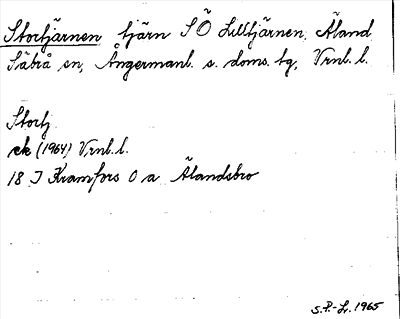 Stortjärnen tjärn SÖ Lilltjärnen, Äland
Säbrå sn, Ångermanl. s. doms. tg, Vrnl. l.
Stortj.
ek (1964) Vrnl. l.
18 J Kramfors O a Älandsbro
S.P.-L. 1965